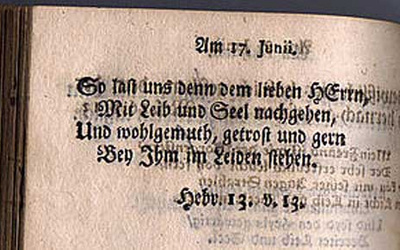 Am 17. Junii.
So last uns denn dem lieben HErrn,
Mit Leib und Seel nachgehen,
Und wohlgemuth, getrost und gern
Bey Jhm im Leiden stehen.
Hebr. 13. v. 13.